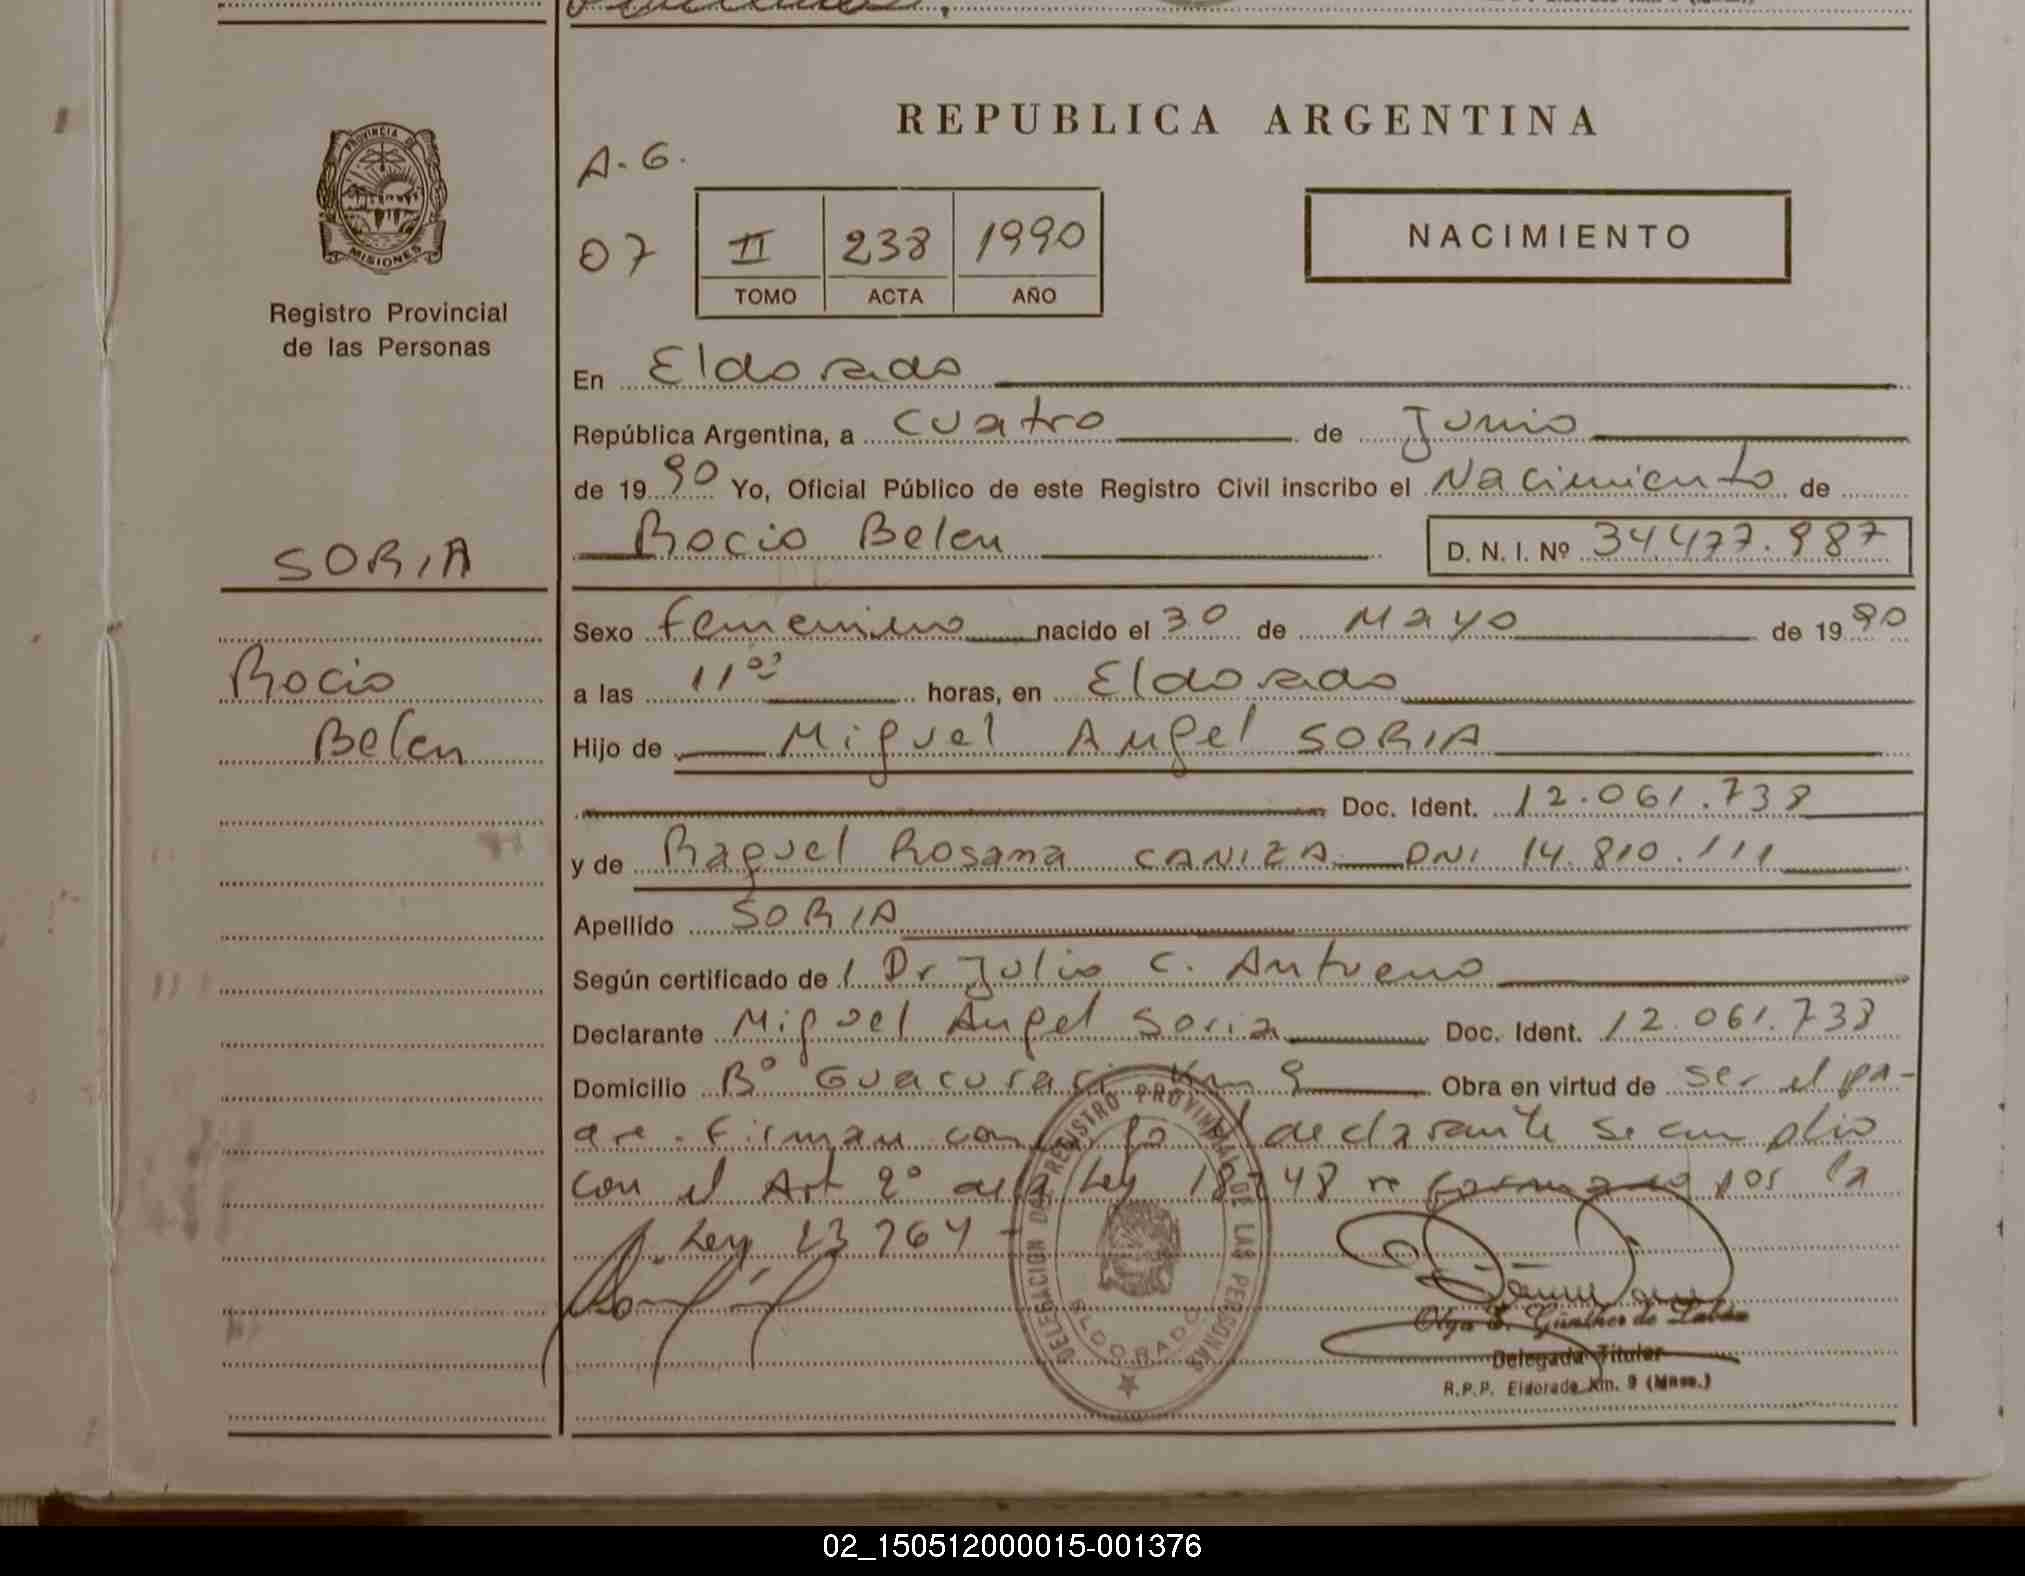 REPUBLICA ARGENTINA
PROVINCIA DE
MISIONES
Registro Provincial
de las Personas
A-G.
07
II 238 1990
TOMO ACTA AÑO
NACIMIENTO
En Eldorado
República Argentina, a cuatro de Junio
de 1990 Yo, Oficial Público de este Registro Civil inscribo el Nacimiento de
Rocio Belen D. N. I. Nº 34477.987
SORIA
Rocio
Belen
Sexo femenino nacido el 30 de Mayo de 1990
a las 11 horas, en Eldorado
Hijo de Miguel Angel SORIA
Doc. Ident. 12.061.738
y de Raquel Rosana CANIZA DNI 14.810.111
Apellido SORIA
Según certificado de l Dr Julio C. Antueno
Declarante Miguel Angel Soria Doc. Ident. 12.061.738
Domicilio Bº Guacurari Km 9 Obra en virtud de ser el pa-
dre. Firman conmigo el declarante se cumplio
con el Art 2º de la Ley 18248 reformado por la
Ley 23264 -
DELEGACION DEL REGISTRO PROVINCIAL DE LAS PERSONAS
ELDORADO
Olga E. Günther de
Delegada Titular
R.P.P. Eldorado Km. 9 (Mnes.)
02_150512000015-001376